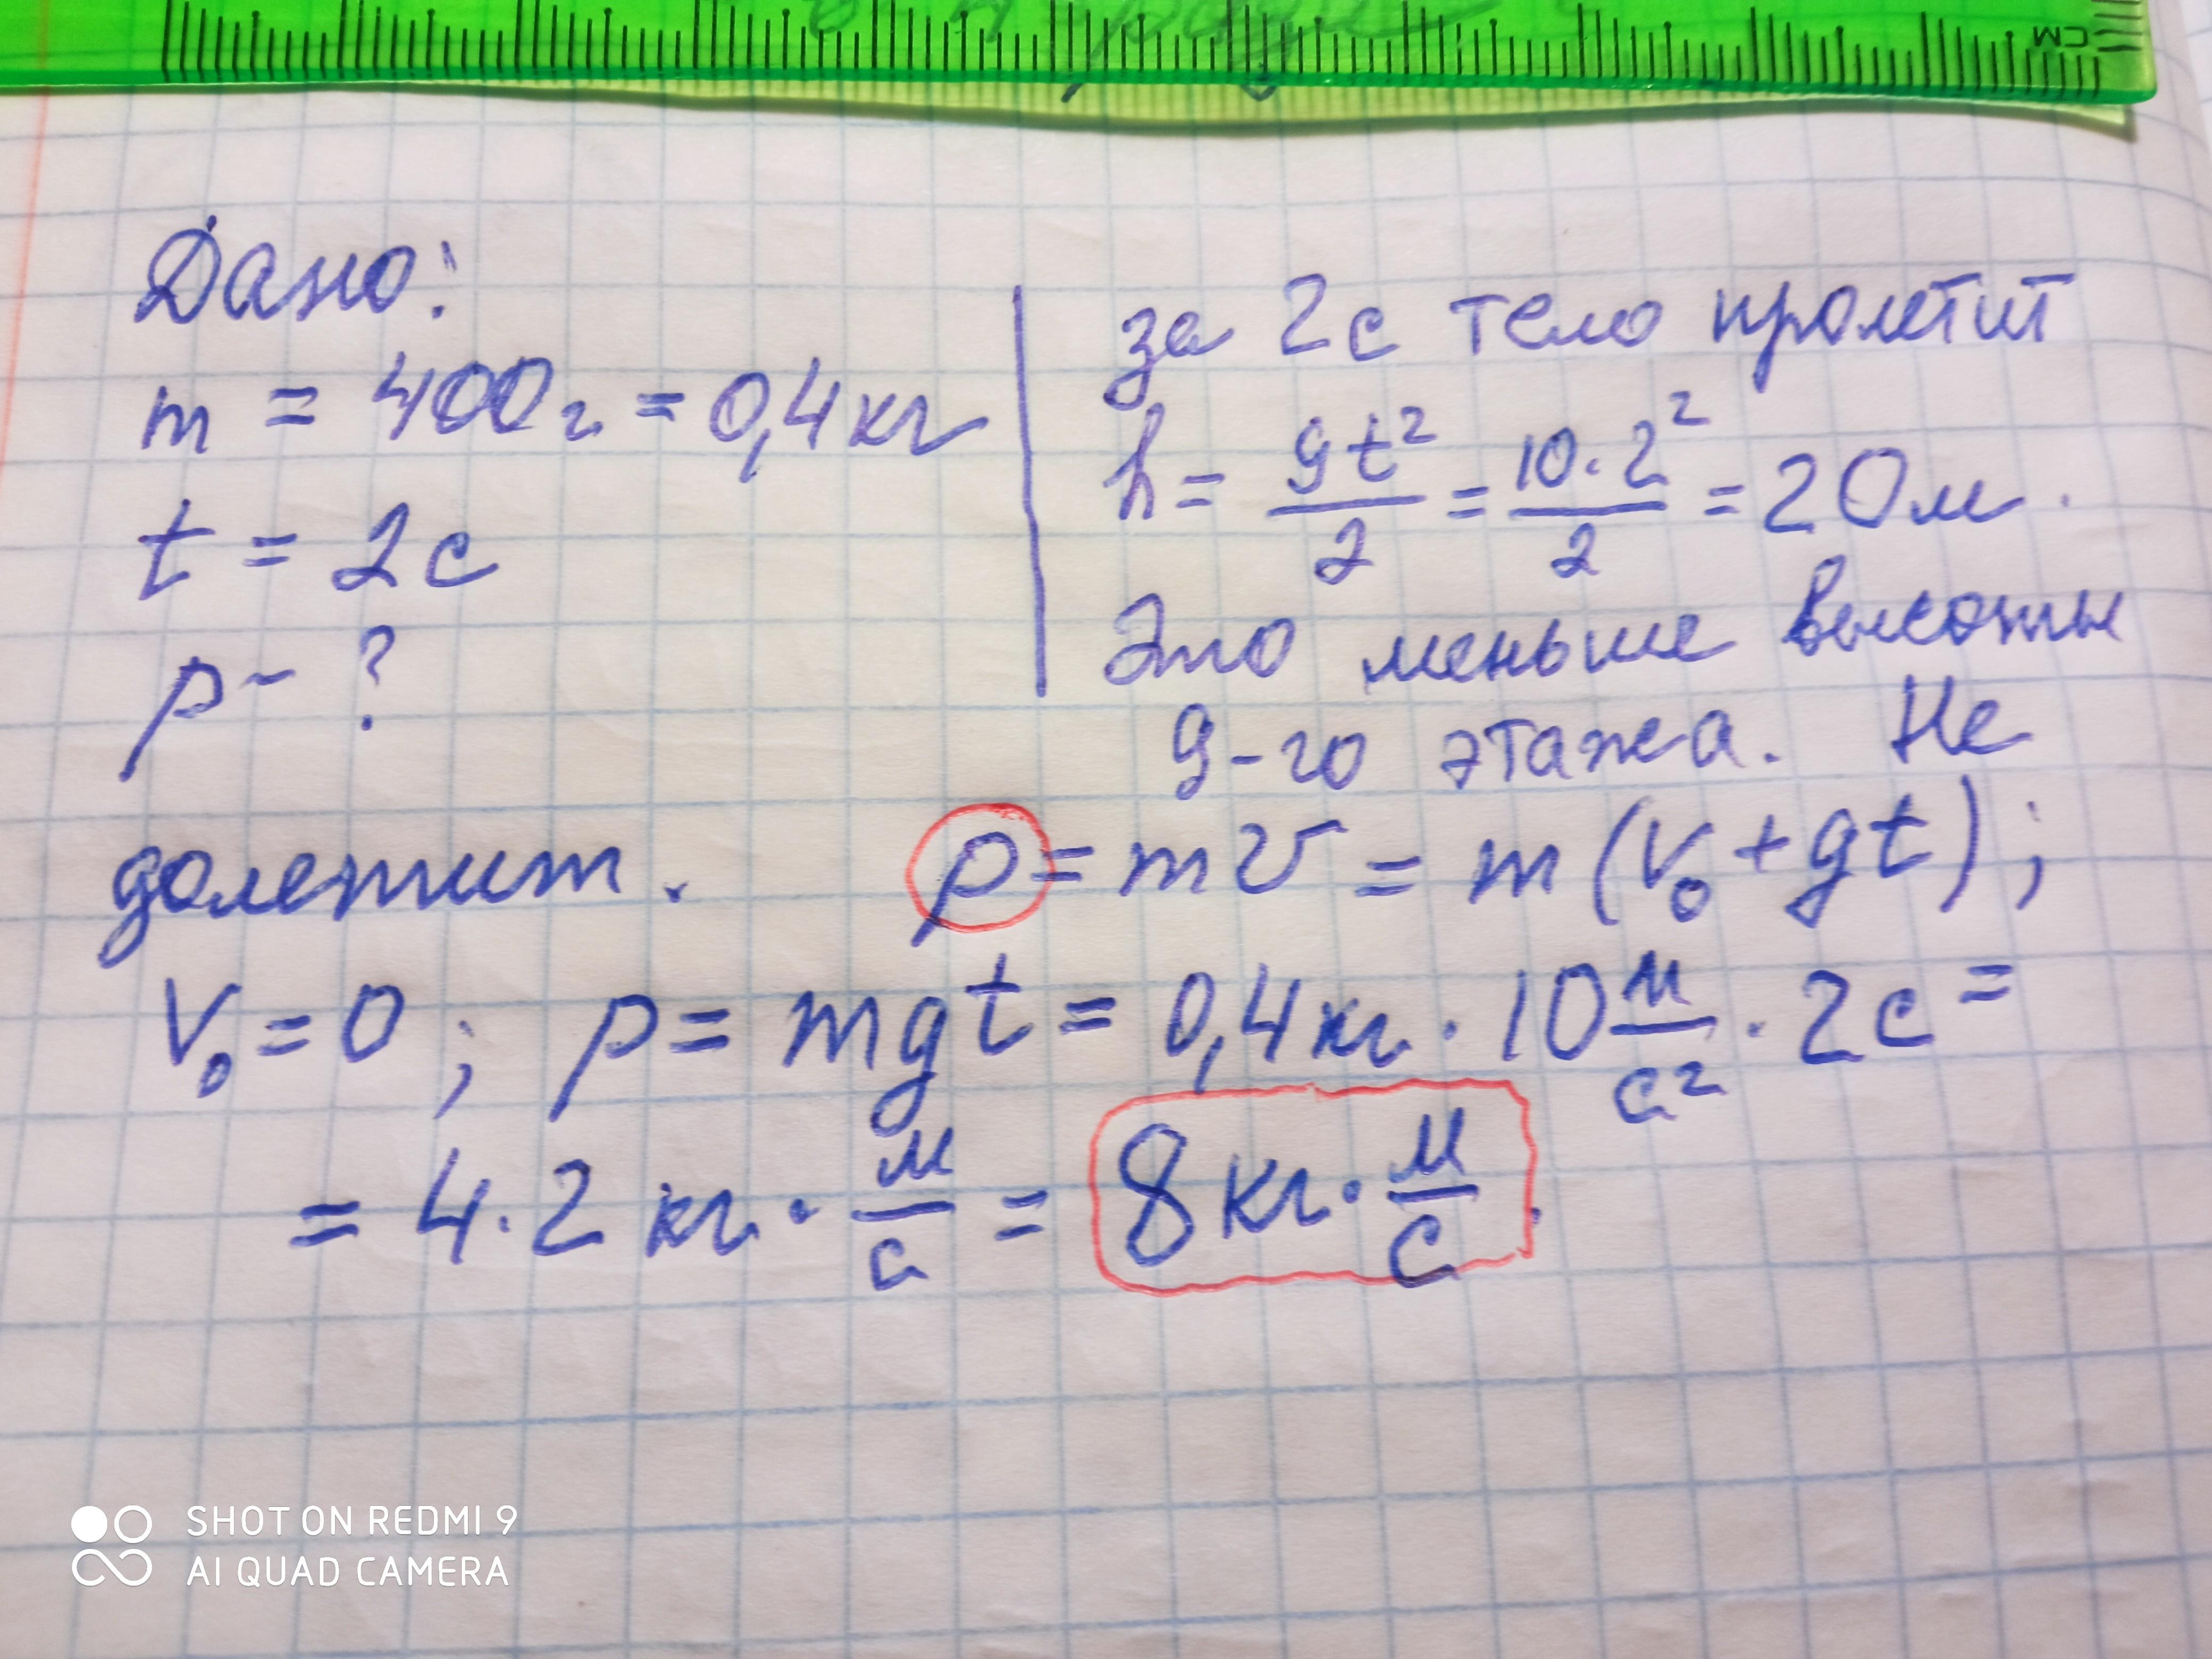 см
Дано:
m = 400г = 0,4кг
t = 2с
p - ?
за 2с тело пролетит
h = gt²/2 = 10·2²/2 = 20м.
Это меньше высоты
9-го этажа. Не
долетит. p = mv = m(v₀ + gt);
V₀ = 0; p = mgt = 0,4кг · 10 м/с² · 2с =
= 4·2 кг · м/с = 8 кг · м/с.
SHOT ON REDMI 9
AI QUAD CAMERA